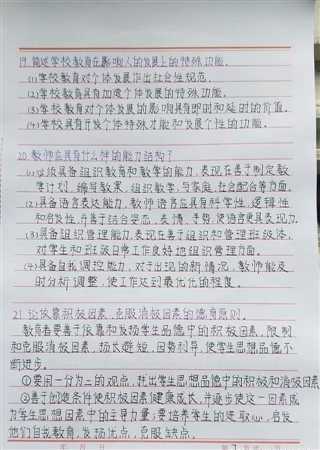 19. 简述学校教育在影响人的发展上的特殊功能。
(1)学校教育对个体发展作出社会性规范。
(2)学校教育具有加速个体发展的特殊功能。
(3)学校教育对个体发展的影响具有即时和延时的价值。
(4)学校具有开发个体特殊才能和发展个性的功能。
20. 教师应具有什么样的能力结构?
(1)必须具备组织教育和教学的能力,表现在善于制定教
学计划、编写教案、组织教学、与家庭、社会配合等方面。
(2)具备语言表达能力,教师语言应具有科学性、逻辑性
和启发性,并善于结合姿态、表情、手势,使语言更具表现力。
(3)具备组织管理能力,表现在善于组织和管理班级体,
对学生和班级日常工作良好地组织管理方面。
(4)具备自我调控能力,对于出现的新情况,教师能及
时分析调整,使工作达到最优化的程度。
21. 论依靠积极因素,克服消极因素的德育原则。
教育者要善于依靠和发扬学生品德中的积极因素,限制
和克服消极因素,扬长避短,因势利导,使学生思想品德不
断进步。
①要用一分为二的观点,找出学生思想品德中的积极和消极因素
②善于创造条件使积极因素健康成长,并逐步使这一因素成
为学生思想因素中的主导力量;要培养学生的进取心,启发
他们自我教育,发扬优点,克服缺点。